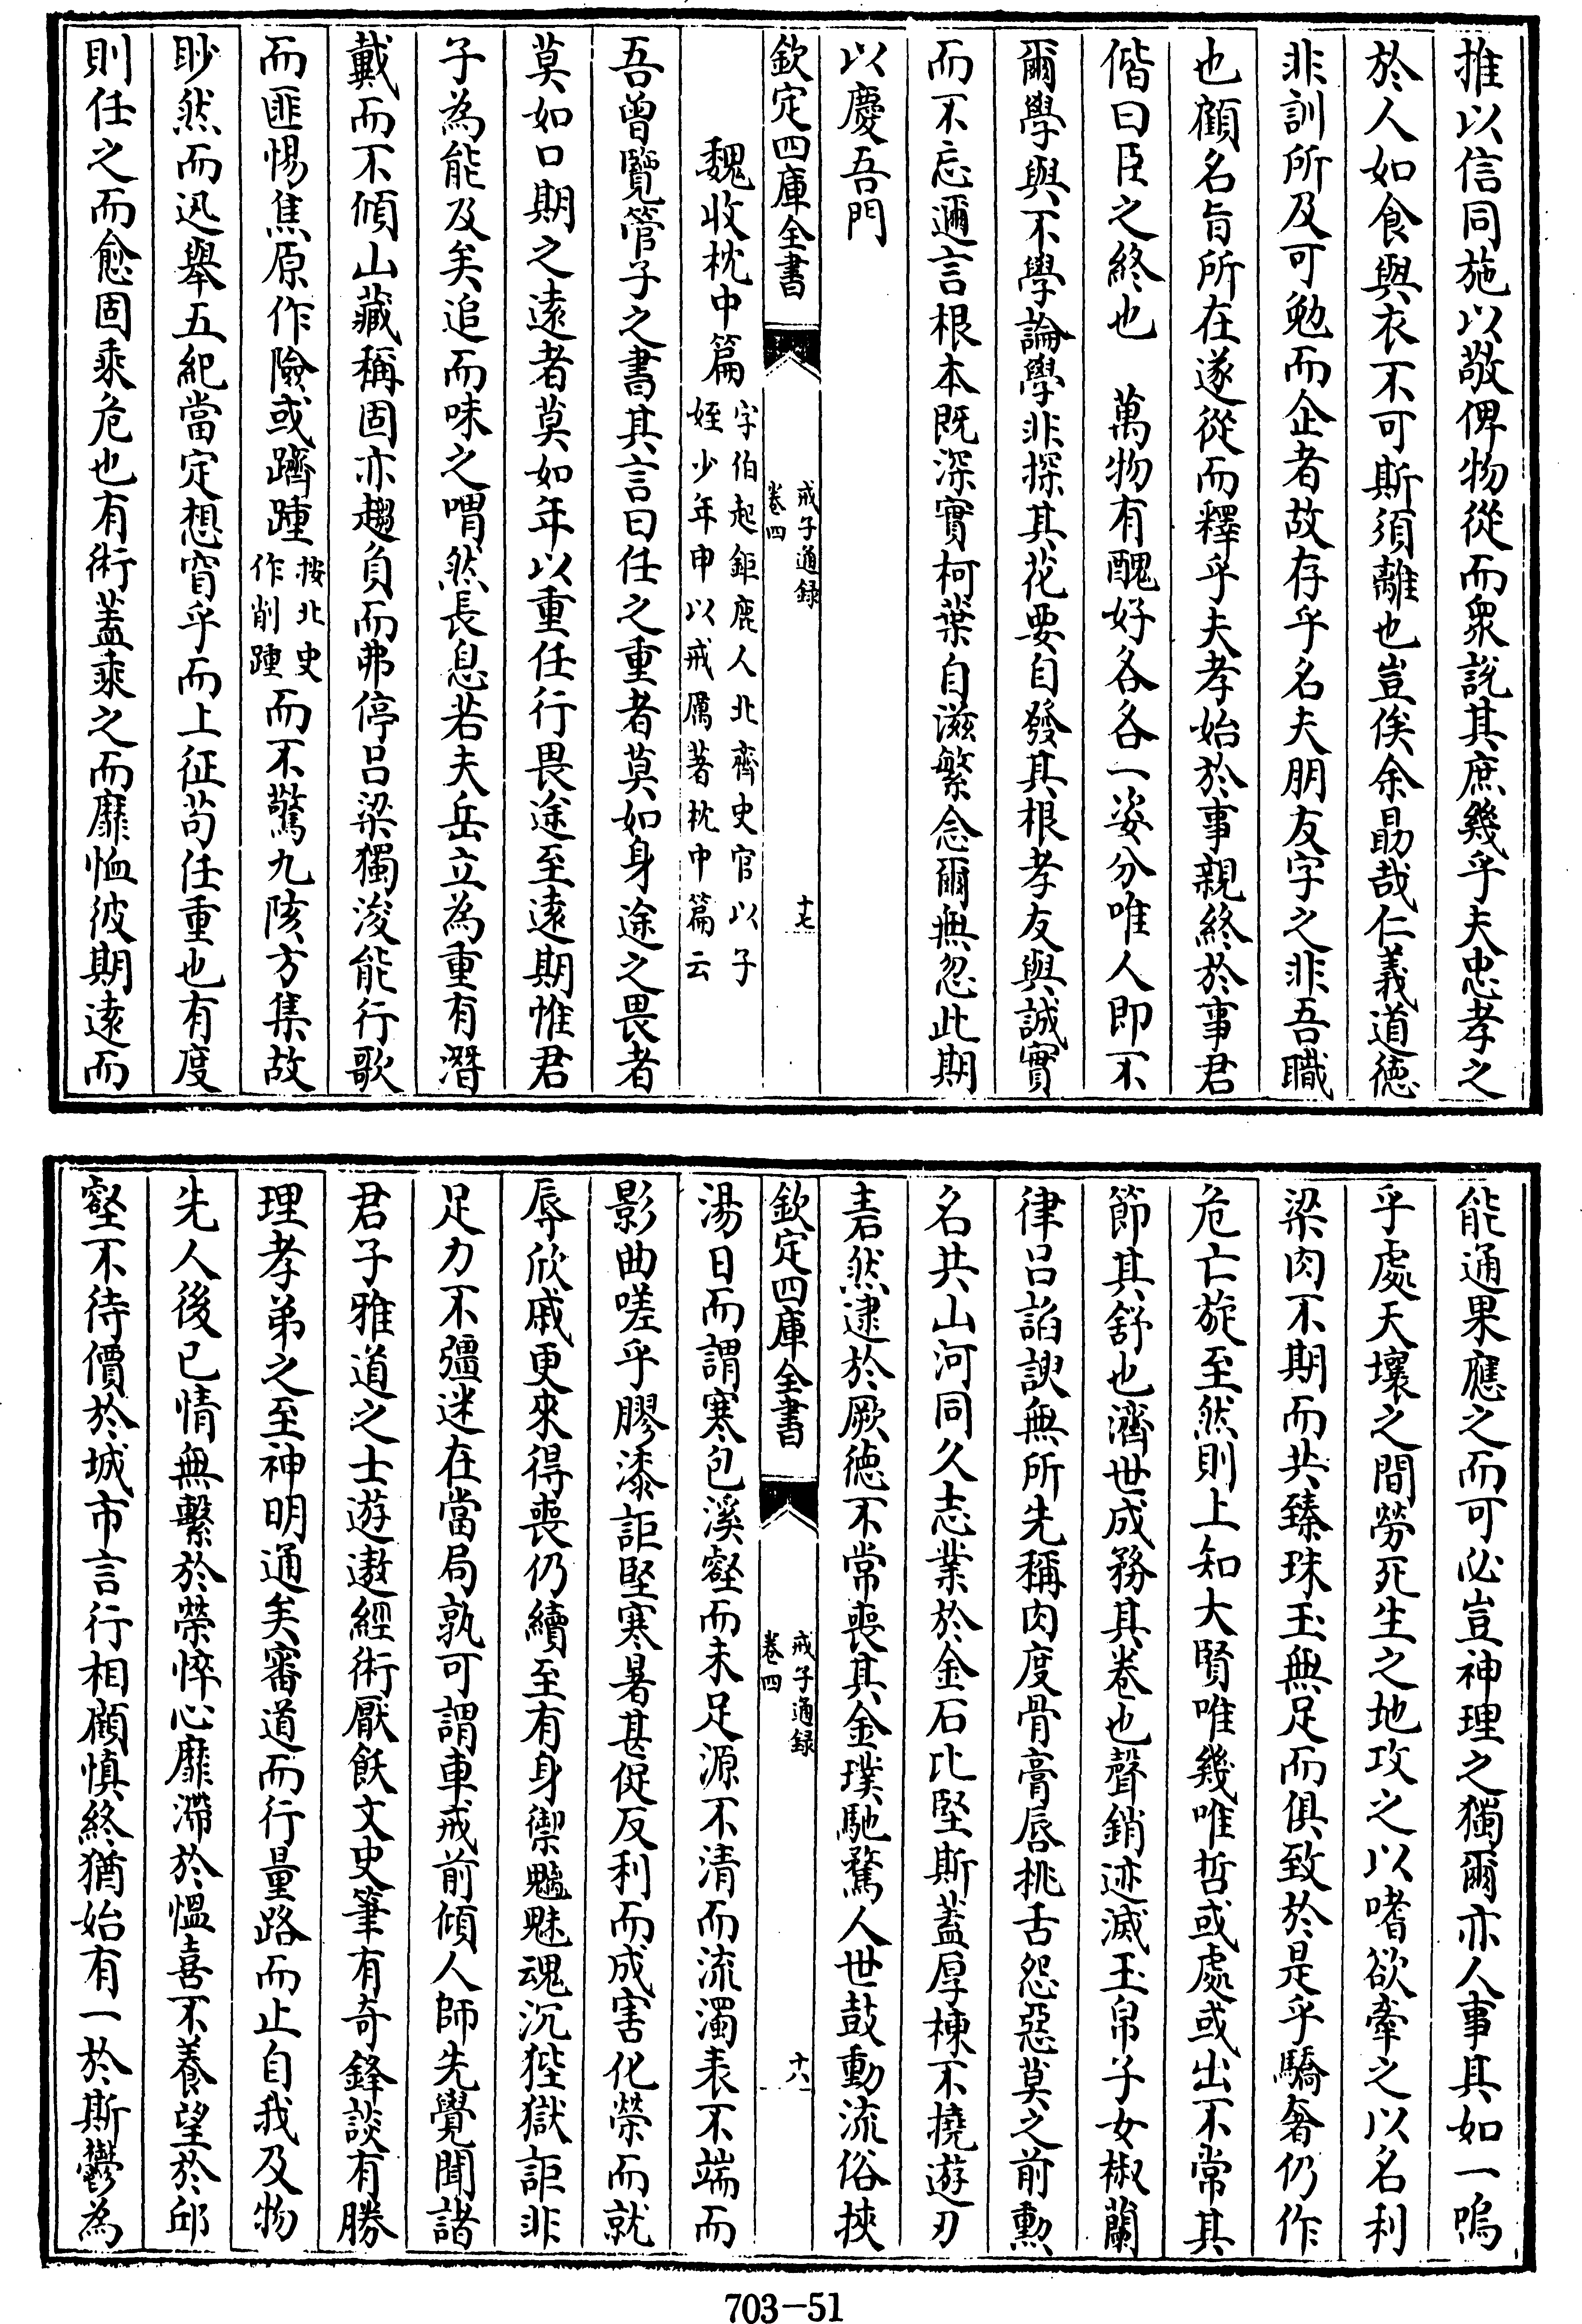 推以信同施以敬俾物從而衆説其庶幾乎夫忠孝之
於人如食與衣不可斯須離也豈俟余勗哉仁義道徳
非訓所及可勉而企者故存乎名夫朋友字之非吾職
也顧名旨所在遂從而釋乎夫孝始於事親終於事君
偕曰臣之終也　萬物有醜好各各一姿分唯人即不
爾學與不學論學非探其花要自發其根孝友與誠實
而不忘邇言根本既深實柯葉自滋繁念爾無忽此期
以慶吾門
欽定四庫全書
戒子通録
卷四
十七
魏收枕中篇
字伯起鉅鹿人北齊史官以子
姪少年申以戒厲著枕中篇云
吾曾覽管子之書其言曰任之重者莫如身途之畏者
莫如口期之遠者莫如年以重任行畏途至遠期惟君
子為能及矣追而味之喟然長息若夫岳立為重有潛
戴而不傾山藏稱固亦趨負而弗停吕梁獨浚能行歌
而匪惕焦原作險或躋踵
按北史
作削踵
而不驚九陔方集故
眇然而迅舉五紀當定想窅乎而上征苟任重也有度
則任之而愈固乘危也有術蓋乘之而靡恤彼期遠而
能通果應之而可必豈神理之獨爾亦人事其如一嗚
乎處天壤之間勞死生之地攻之以嗜欲牽之以名利
梁肉不期而共臻珠玉無足而俱致於是乎驕奢仍作
危亡旋至然則上知大賢唯幾唯哲或處或出不常其
節其舒也濟世成務其卷也聲銷迹滅玉帛子女椒蘭
律吕諂諛無所先稱肉度骨膏唇挑舌怨惡莫之前勳
名共山河同久志業於金石比堅斯蓋厚棟不撓遊刃
砉然逮於厥徳不常喪其金璞馳騖人世鼓動流俗挾
欽定四庫全書
戒子通録
卷四
十八
湯日而謂寒包溪壑而未足源不清而流濁表不端而
影曲嗟乎膠漆詎堅寒暑甚促反利而成害化榮而就
辱欣戚更來得喪仍續至有身禦魑魅魂沉狴獄詎非
足力不彊迷在當局孰可謂車戒前傾人師先覺聞諸
君子雅道之士遊遨經術厭飫文史筆有奇鋒談有勝
理孝弟之至神明通矣審道而行量路而止自我及物
先人後已情無繫於榮悴心靡滯於愠喜不養望於邱
壑不待價於城市言行相顧慎終猶始有一於斯鬱為
703-51